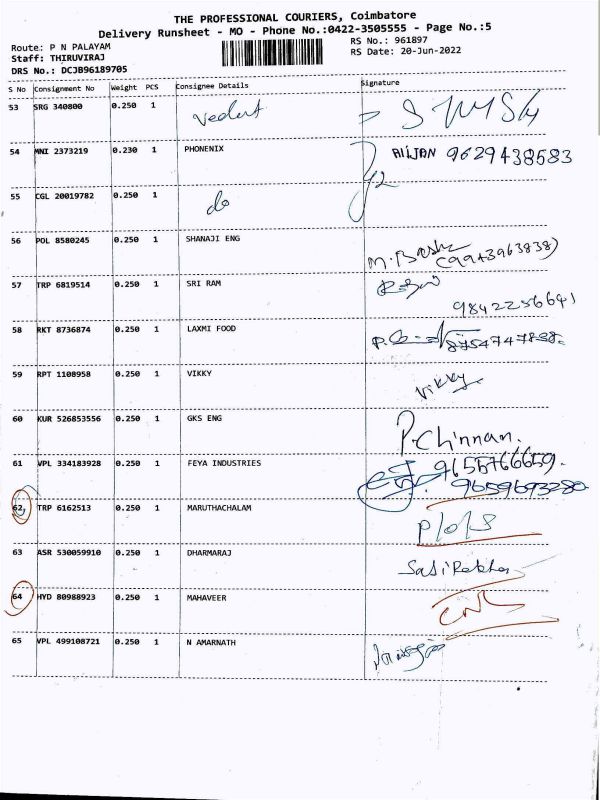 THE PROFESSIONAL COURIERS, Coimbatore
Delivery Runsheet - MO - Phone No.:0422-3505555 - Page No.:5
Route: P N PALAYAM
RS No.: 961897
Staff: THIRUVIRAJ
RS Date: 20-Jun-2022
DRS No.: DCJB96189705
S No Consignment No Weight PCS Consignee Details Signature
53 SRG 340800 0.250 1
54 MNI 2373219 0.230 1 PHONENIX 9629438583
55 CGL 20019782 0.250 1 do
56 POL 8580245 0.250 1 SHANAJI ENG
57 TRP 6819514 0.250 1 SRI RAM
9842256641
58 RKT 8736874 0.250 1 LAXMI FOOD
59 RPT 1108958 0.250 1 VIKKY Vikky
60 KUR 526853556 0.250 1 GKS ENG P.Chinnan.
9655766659.
61 VPL 334183928 0.250 1 FEYA INDUSTRIES
9659693280
62 TRP 6162513 0.250 1 MARUTHACHALAM
63 ASR 530059910 0.250 1 DHARMARAJ
64 HYD 80988923 0.250 1 MAHAVEER
65 VPL 499108721 0.250 1 N AMARNATH